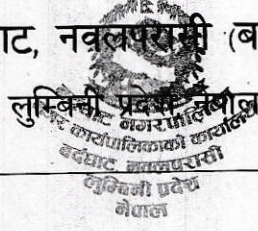 ाट, नवलपरासी (ब
लुम्बिनी प्रदेश नेपाल
नगरपालिका
कार्यपालिकाको कार्यालय
बर्दघाट नवलपरासी
लुम्बिनी प्रदेश
नेपाल